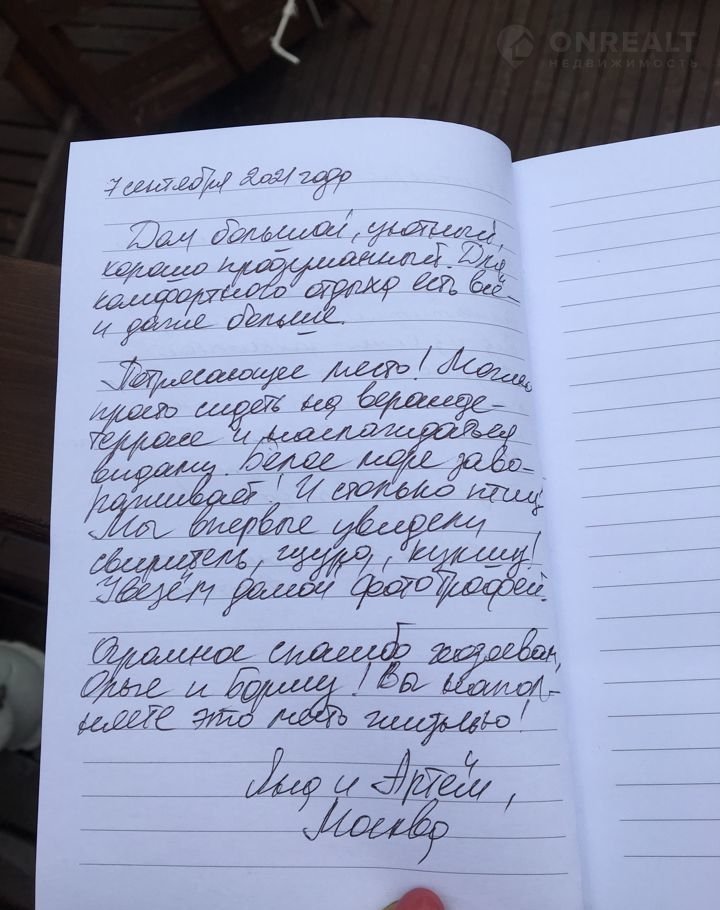 ONREALT
НЕДВИЖИМОСТЬ
7 сентября 2021 года
Дом большой, уютный,
хорошо продуманный. Для
комфортного отдыха есть всё –
и даже больше.
Потрясающее место! Можно
просто сидеть на веранде-
террасе и наслаждаться
видами. Белое море заво-
раживает! И столько птиц!
Мы впервые увидели
свиристель, щура, кукшу!
Увезём домой фототрофей.
Огромное спасибо хозяевам,
Ольге и Борису! Вы напол-
няете это место жизнью!
и Артём,
Москва